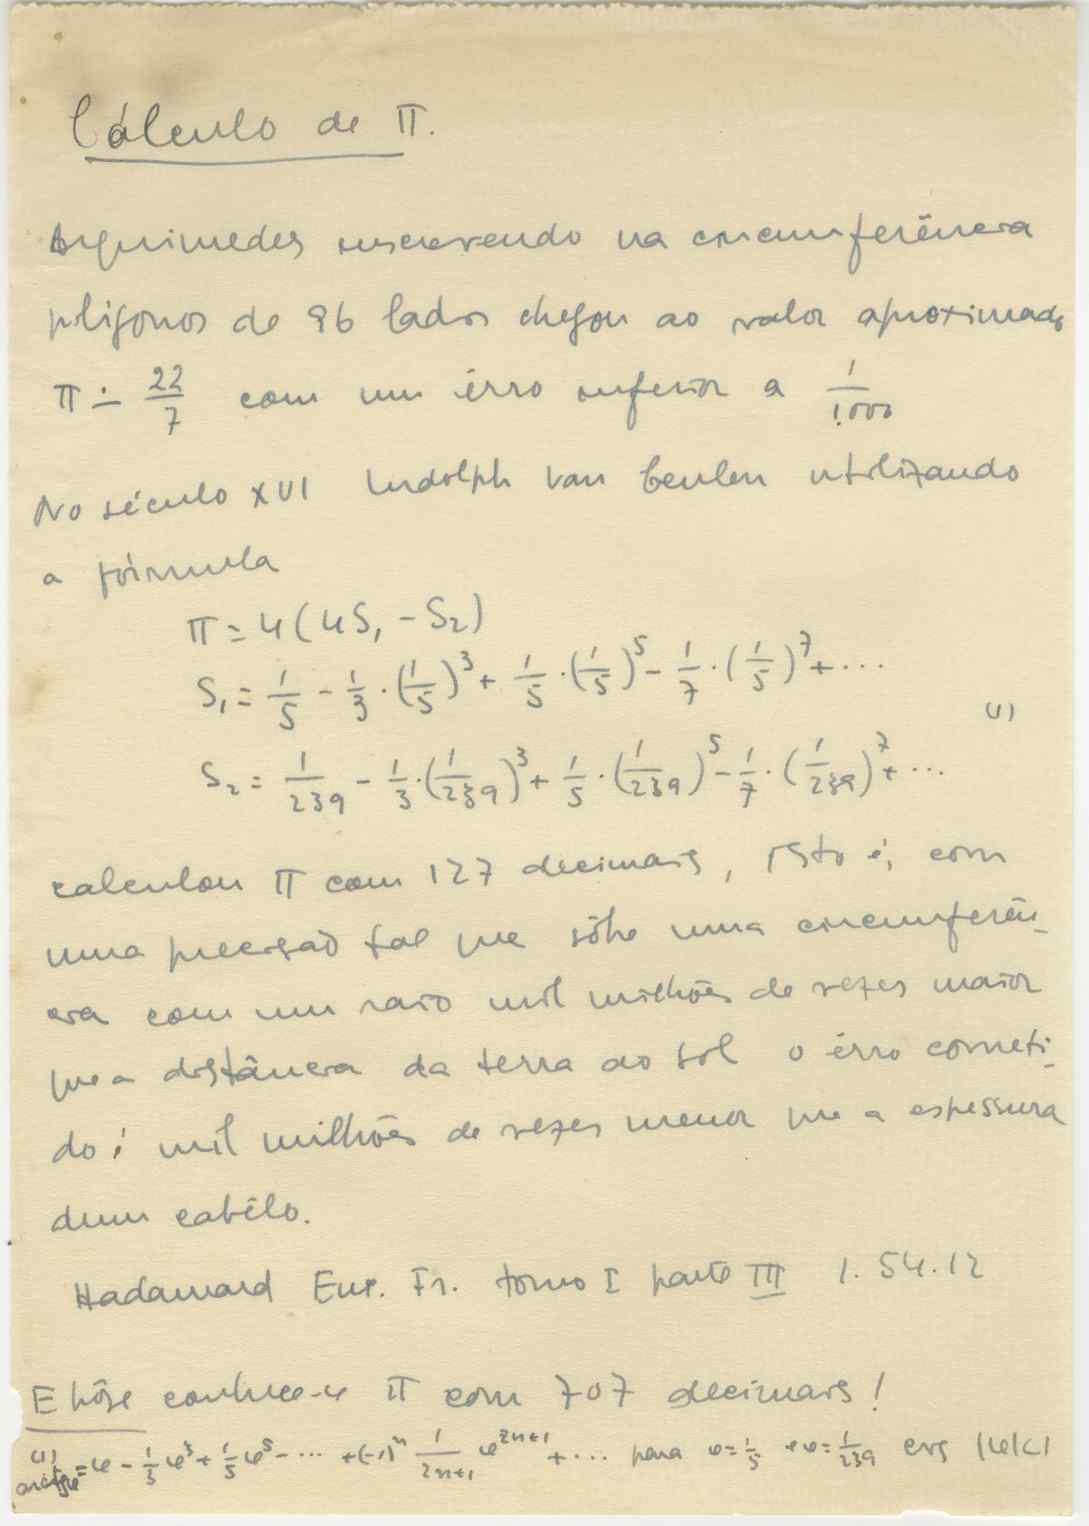 Cálculo de π.
Arquimedes inscrevendo na circunferência
polígonos de 96 lados chegou ao valor aproximado
π ≐ 22/7 com um êrro inferior a 1/1.000
No século XVI Ludolph van Ceulen utilizando
a fórmula
π = 4(4S₁ - S₂)
S₁ = 1/5 - 1/3 · (1/5)³ + 1/5 · (1/5)⁵ - 1/7 · (1/5)⁷ + ···
(1)
S₂ = 1/239 - 1/3 · (1/239)³ + 1/5 · (1/239)⁵ - 1/7 · (1/239)⁷ + ···
calculou π com 127 decimais, isto é, com
uma precisão tal que sôbre uma circunferên-
cia com um raio mil milhões de vezes maior
que a distância da terra ao sol o êrro cometi-
do é mil milhões de vezes menor que a espessura
dum cabêlo.
Hadamard Enc. Fr. tomo I parte III 1.54.12
E hôje conhece-se π com 707 decimais!
(1) arctgφ = φ - 1/3 φ³ + 1/5 φ⁵ - ··· + (-1)ⁿ 1/2n+1 φ²ⁿ⁺¹ + ··· para φ = 1/5 e φ = 1/239 |φ|<1